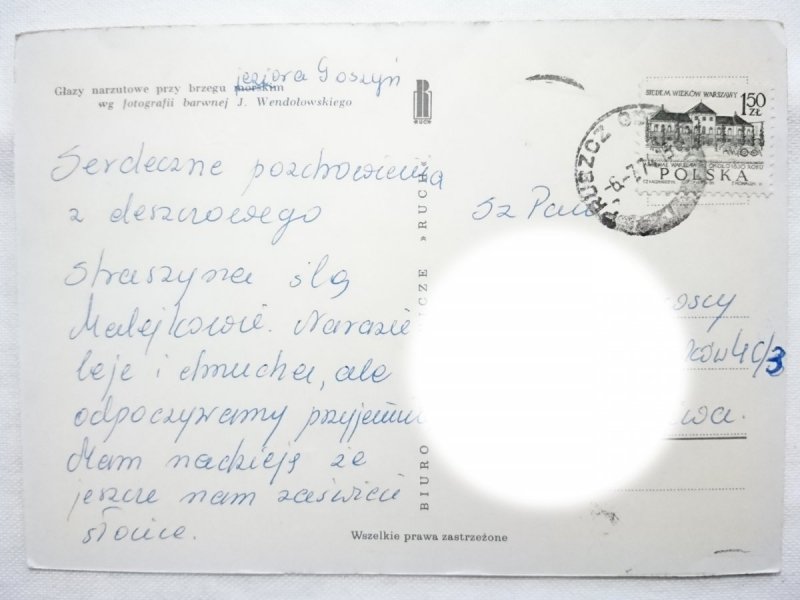 jeziora Goszyń
Głazy narzutowe przy brzegu morskim
wg fotografii barwnej J. Wendołowskiego
RUCH
Serdeczne pozdrowienia
z deszczowego
Straszyna ślą
Malejkowie. Narazie
leje i dmucha, ale
odpoczywamy przyjemnie
Mam nadzieję że
jeszcze nam zaświeci
słońce.
BIURO
ICZE »RUCH«
Wszelkie prawa zastrzeżone
SIEDEM WIEKÓW WARSZAWY
1,50
ZŁ
POLSKA
PRUSZCZ
-6.-7.7
Sz Pań
oscy
ków 4c/3
wa.